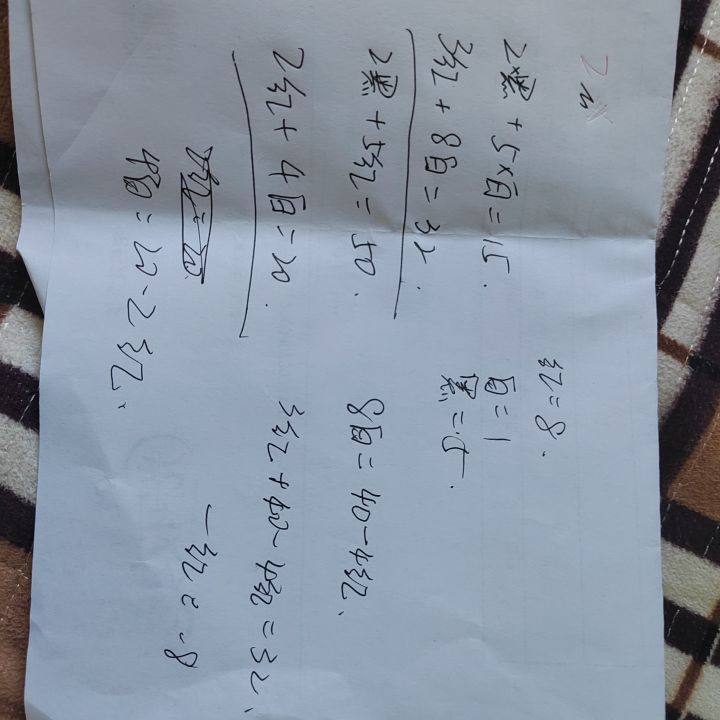 2×黑+5×白=15.
3红+8白=32.
2黑+5红=50.
2红+4白=20.
4白=20-2红.
红=8.
白=1
黑=5.
8白=40-4红.
3红+40-4红=32.
-红=-8